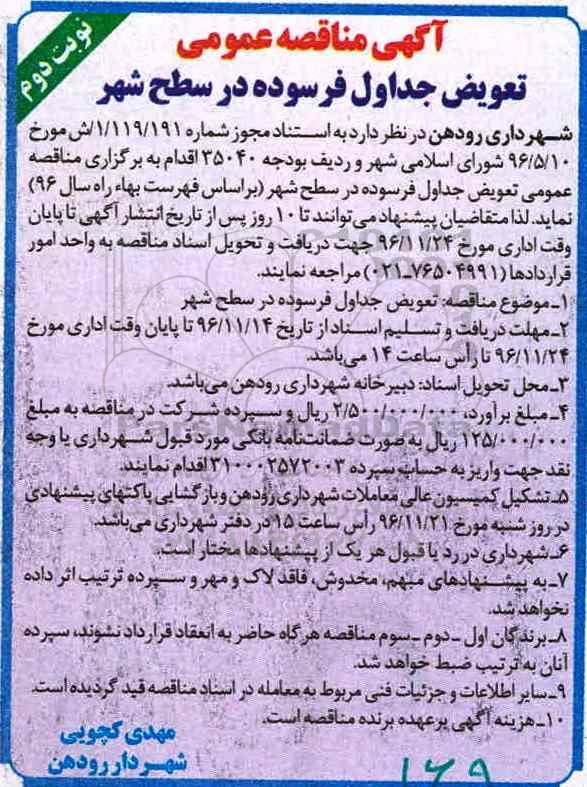 نوبت دوم
آگهی مناقصه عمومی
تعویض جداول فرسوده در سطح شهر
شهرداری رودهن در نظر دارد به استناد مجوز شماره ۱/۱۱۹/۱۹۱/ش مورخ
۹۶/۵/۱۰ شورای اسلامی شهر و ردیف بودجه ۳۵۰۴۰ اقدام به برگزاری مناقصه
عمومی تعویض جداول فرسوده در سطح شهر (براساس فهرست بهاء راه سال ۹۶)
نماید. لذا متقاضیان پیشنهاد می‌توانند تا ۱۰ روز پس از تاریخ انتشار آگهی تا پایان
وقت اداری مورخ ۹۶/۱۱/۲۴ جهت دریافت و تحویل اسناد مناقصه به واحد امور
قراردادها (۷۶۵۰۴۹۹۱-۰۲۱) مراجعه نمایند.
۱-موضوع مناقصه: تعویض جداول فرسوده در سطح شهر
۲-مهلت دریافت و تسلیم اسناد از تاریخ ۹۶/۱۱/۱۴ تا پایان وقت اداری مورخ
۹۶/۱۱/۲۴ تا رأس ساعت ۱۴ می‌باشد.
۳-محل تحویل اسناد: دبیرخانه شهرداری رودهن می‌باشد.
۴-مبلغ برآورد، ۲/۵۰۰/۰۰۰/۰۰۰ ریال و سپرده شرکت در مناقصه به مبلغ
۱۲۵/۰۰۰/۰۰۰ ریال به صورت ضمانت‌نامه بانکی مورد قبول شهرداری یا وجه
نقد جهت واریز به حساب سپرده ۳۱۰۰۰۲۵۷۲۰۰۳ اقدام نمایند.
۵-تشکیل کمیسیون عالی معاملات شهرداری رودهن و بازگشایی پاکتهای پیشنهادی
در روز شنبه مورخ ۹۶/۱۱/۲۱ رأس ساعت ۱۵ در دفتر شهرداری می‌باشد.
۶-شهرداری در رد یا قبول هر یک از پیشنهادها مختار است.
۷-به پیشنهادهای مبهم، مخدوش، فاقد لاک و مهر و سپرده ترتیب اثر داده
نخواهد شد.
۸-برندگان اول -دوم -سوم مناقصه هرگاه حاضر به انعقاد قرارداد نشوند، سپرده
آنان به ترتیب ضبط خواهد شد.
۹-سایر اطلاعات و جزئیات فنی مربوط به معامله در اسناد مناقصه قید گردیده است.
۱۰-هزینه آگهی برعهده برنده مناقصه است.
مهدی کچویی
شهردار رودهن
ParsNamadData